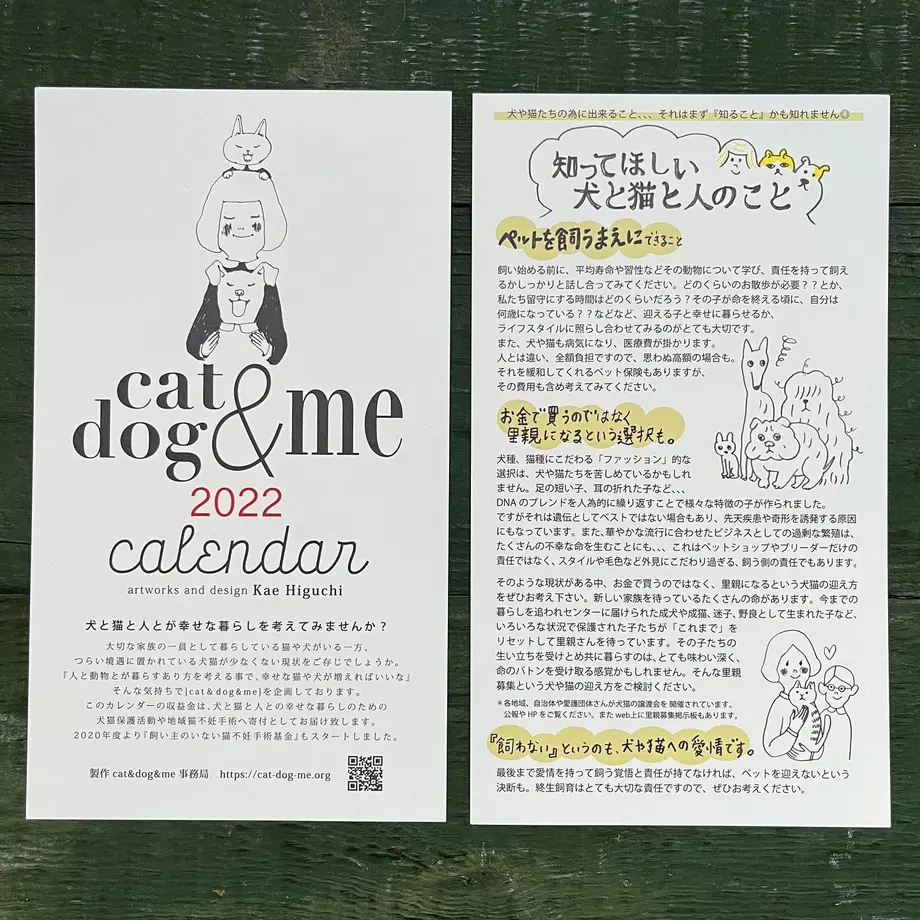 cat
dog&me
2022
calendar
artworks and design Kae Higuchi
犬と猫と人とが幸せな暮らしを考えてみませんか？
大切な家族の一員として暮らしている猫や犬がいる一方、
つらい境遇に置かれている犬猫が少なくない現状をご存じでしょうか。
『人と動物とが暮らすあり方を考える事で、幸せな猫や犬が増えればいいな』
そんな気持ちで[cat&dog&me]を企画しております。
このカレンダーの収益金は、犬と猫と人との幸せな暮らしのための
犬猫保護活動や地域猫不妊手術へ寄付としてお届け致します。
2020年度より『飼い主のいない猫不妊手術基金』もスタートしました。
製作 cat&dog&me 事務局 https://cat-dog-me.org
犬や猫たちの為に出来ること、、、それはまず『知ること』かも知れません◎
知ってほしい
犬と猫と人のこと
ペットを飼うまえにできること
飼い始める前に、平均寿命や習性などその動物について学び、責任を持って飼え
るかしっかりと話し合ってみてください。どのくらいのお散歩が必要？？とか、
私たち留守にする時間はどのくらいだろう？その子が命を終える頃に、自分は
何歳になっている？？などなど、迎える子と幸せに暮らせるか、
ライフスタイルに照らし合わせてみるのがとても大切です。
また、犬や猫も病気になり、医療費が掛かります。
人とは違い、全額負担ですので、思わぬ高額の場合も。
それを緩和してくれるペット保険もありますが、
その費用も含め考えてみてください。
お金で買うのではなく
里親になるという選択も。
犬種、猫種にこだわる「ファッション」的な
選択は、犬や猫たちを苦しめているかもしれ
ません。足の短い子、耳の折れた子など、、、
DNAのブレンドを人為的に繰り返すことで様々な特徴の子が作られました。
ですがそれは遺伝としてベストではない場合もあり、先天疾患や奇形を誘発する原因
にもなっています。また、華やかな流行に合わせたビジネスとしての過剰な繁殖は、
たくさんの不幸な命を生むことにも、、、これはペットショップやブリーダーだけの
責任ではなく、スタイルや毛色など外見にこだわり過ぎる、飼う側の責任でもあります。
そのような現状がある中、お金で買うのではなく、里親になるという犬猫の迎え方
をぜひお考え下さい。新しい家族を待っているたくさんの命があります。今までの
暮らしを追われセンターに届けられた成犬や成猫、迷子、野良として生まれた子など、
いろいろな状況で保護された子たちが「これまで」を
リセットして里親さんを待っています。その子たちの
生い立ちを受けとめ共に暮らすのは、とても味わい深く、
命のバトンを受け取る感覚かもしれません。そんな里親
募集という犬や猫の迎え方をご検討ください。
＊各地域、自治体や愛護団体さんが犬猫の譲渡会を開催されています。
公報やHPをご覧ください。またweb上に里親募集掲示板もあります。
『飼わない』というのも、犬や猫への愛情です。
最後まで愛情を持って飼う覚悟と責任が持てなければ、ペットを迎えないという
決断も。終生飼育はとても大切な責任ですので、ぜひお考えください。